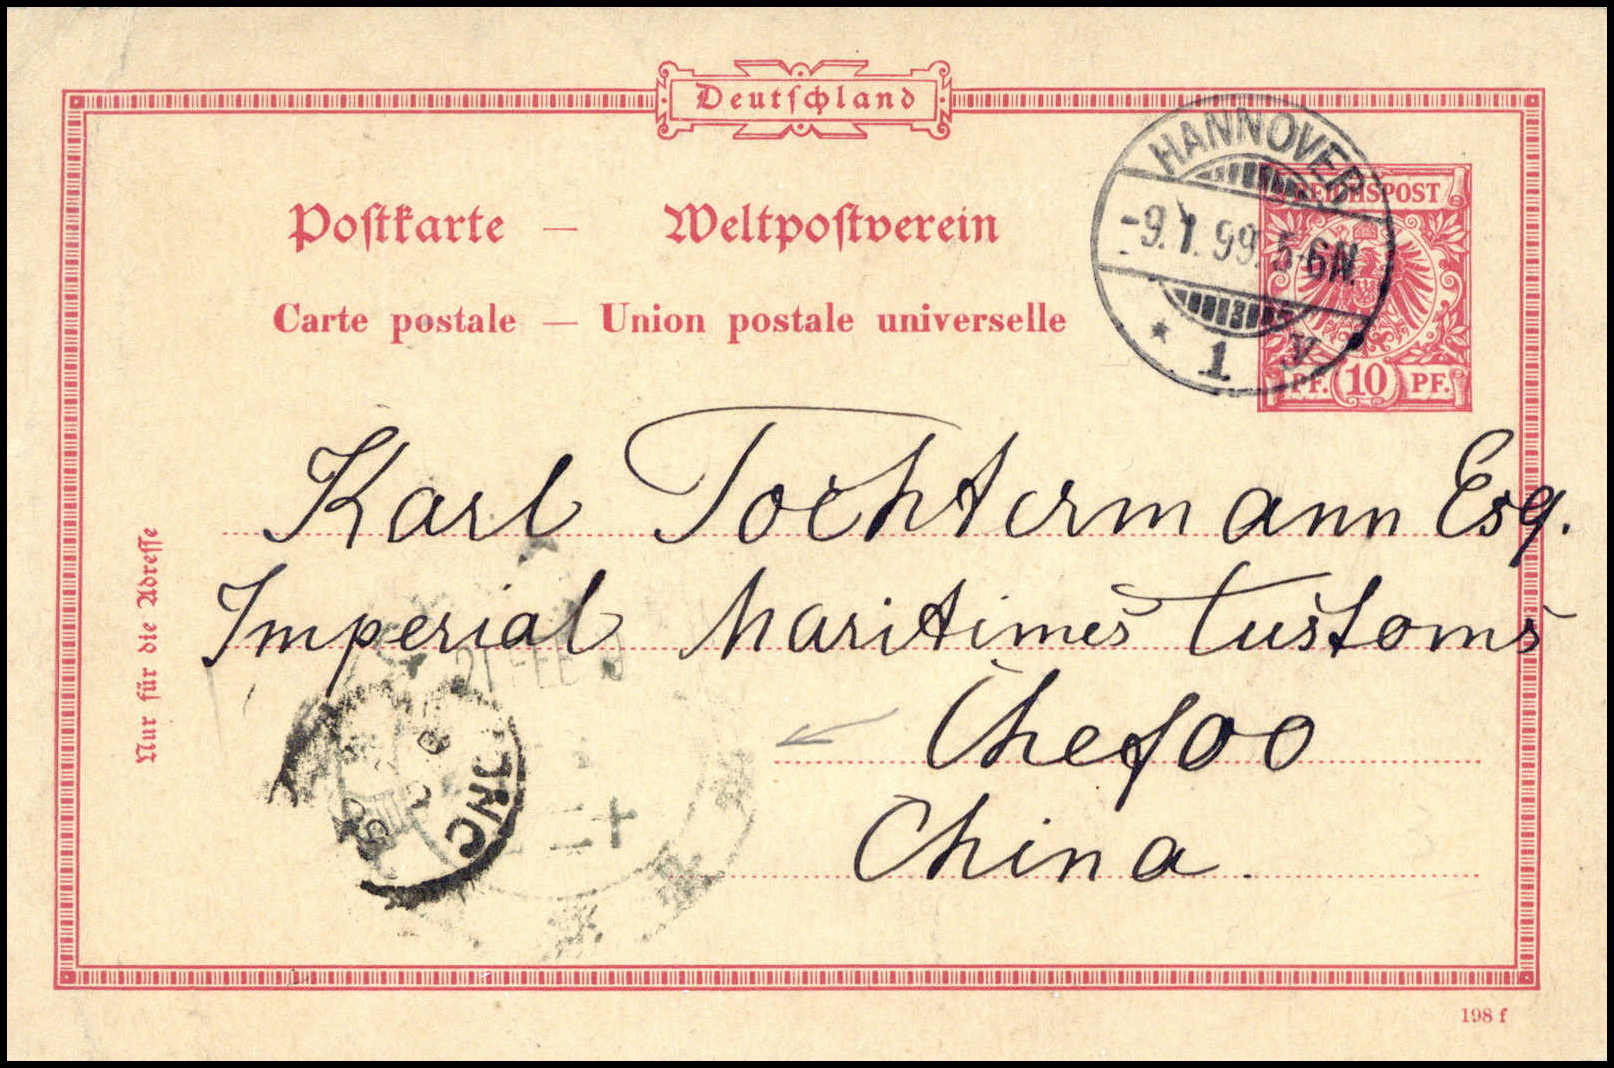 Deutschland
Postkarte — Weltpostverein
Carte postale — Union postale universelle
HANNOVER
-9.1.99.5-6N.
* 1 y
REICHSPOST
PF. 10 PF.
Karl Tochtermann Esq.
Imperial Maritimes Customs
Chefoo
China.
Nur für die Adresse
21 FEB
198 f